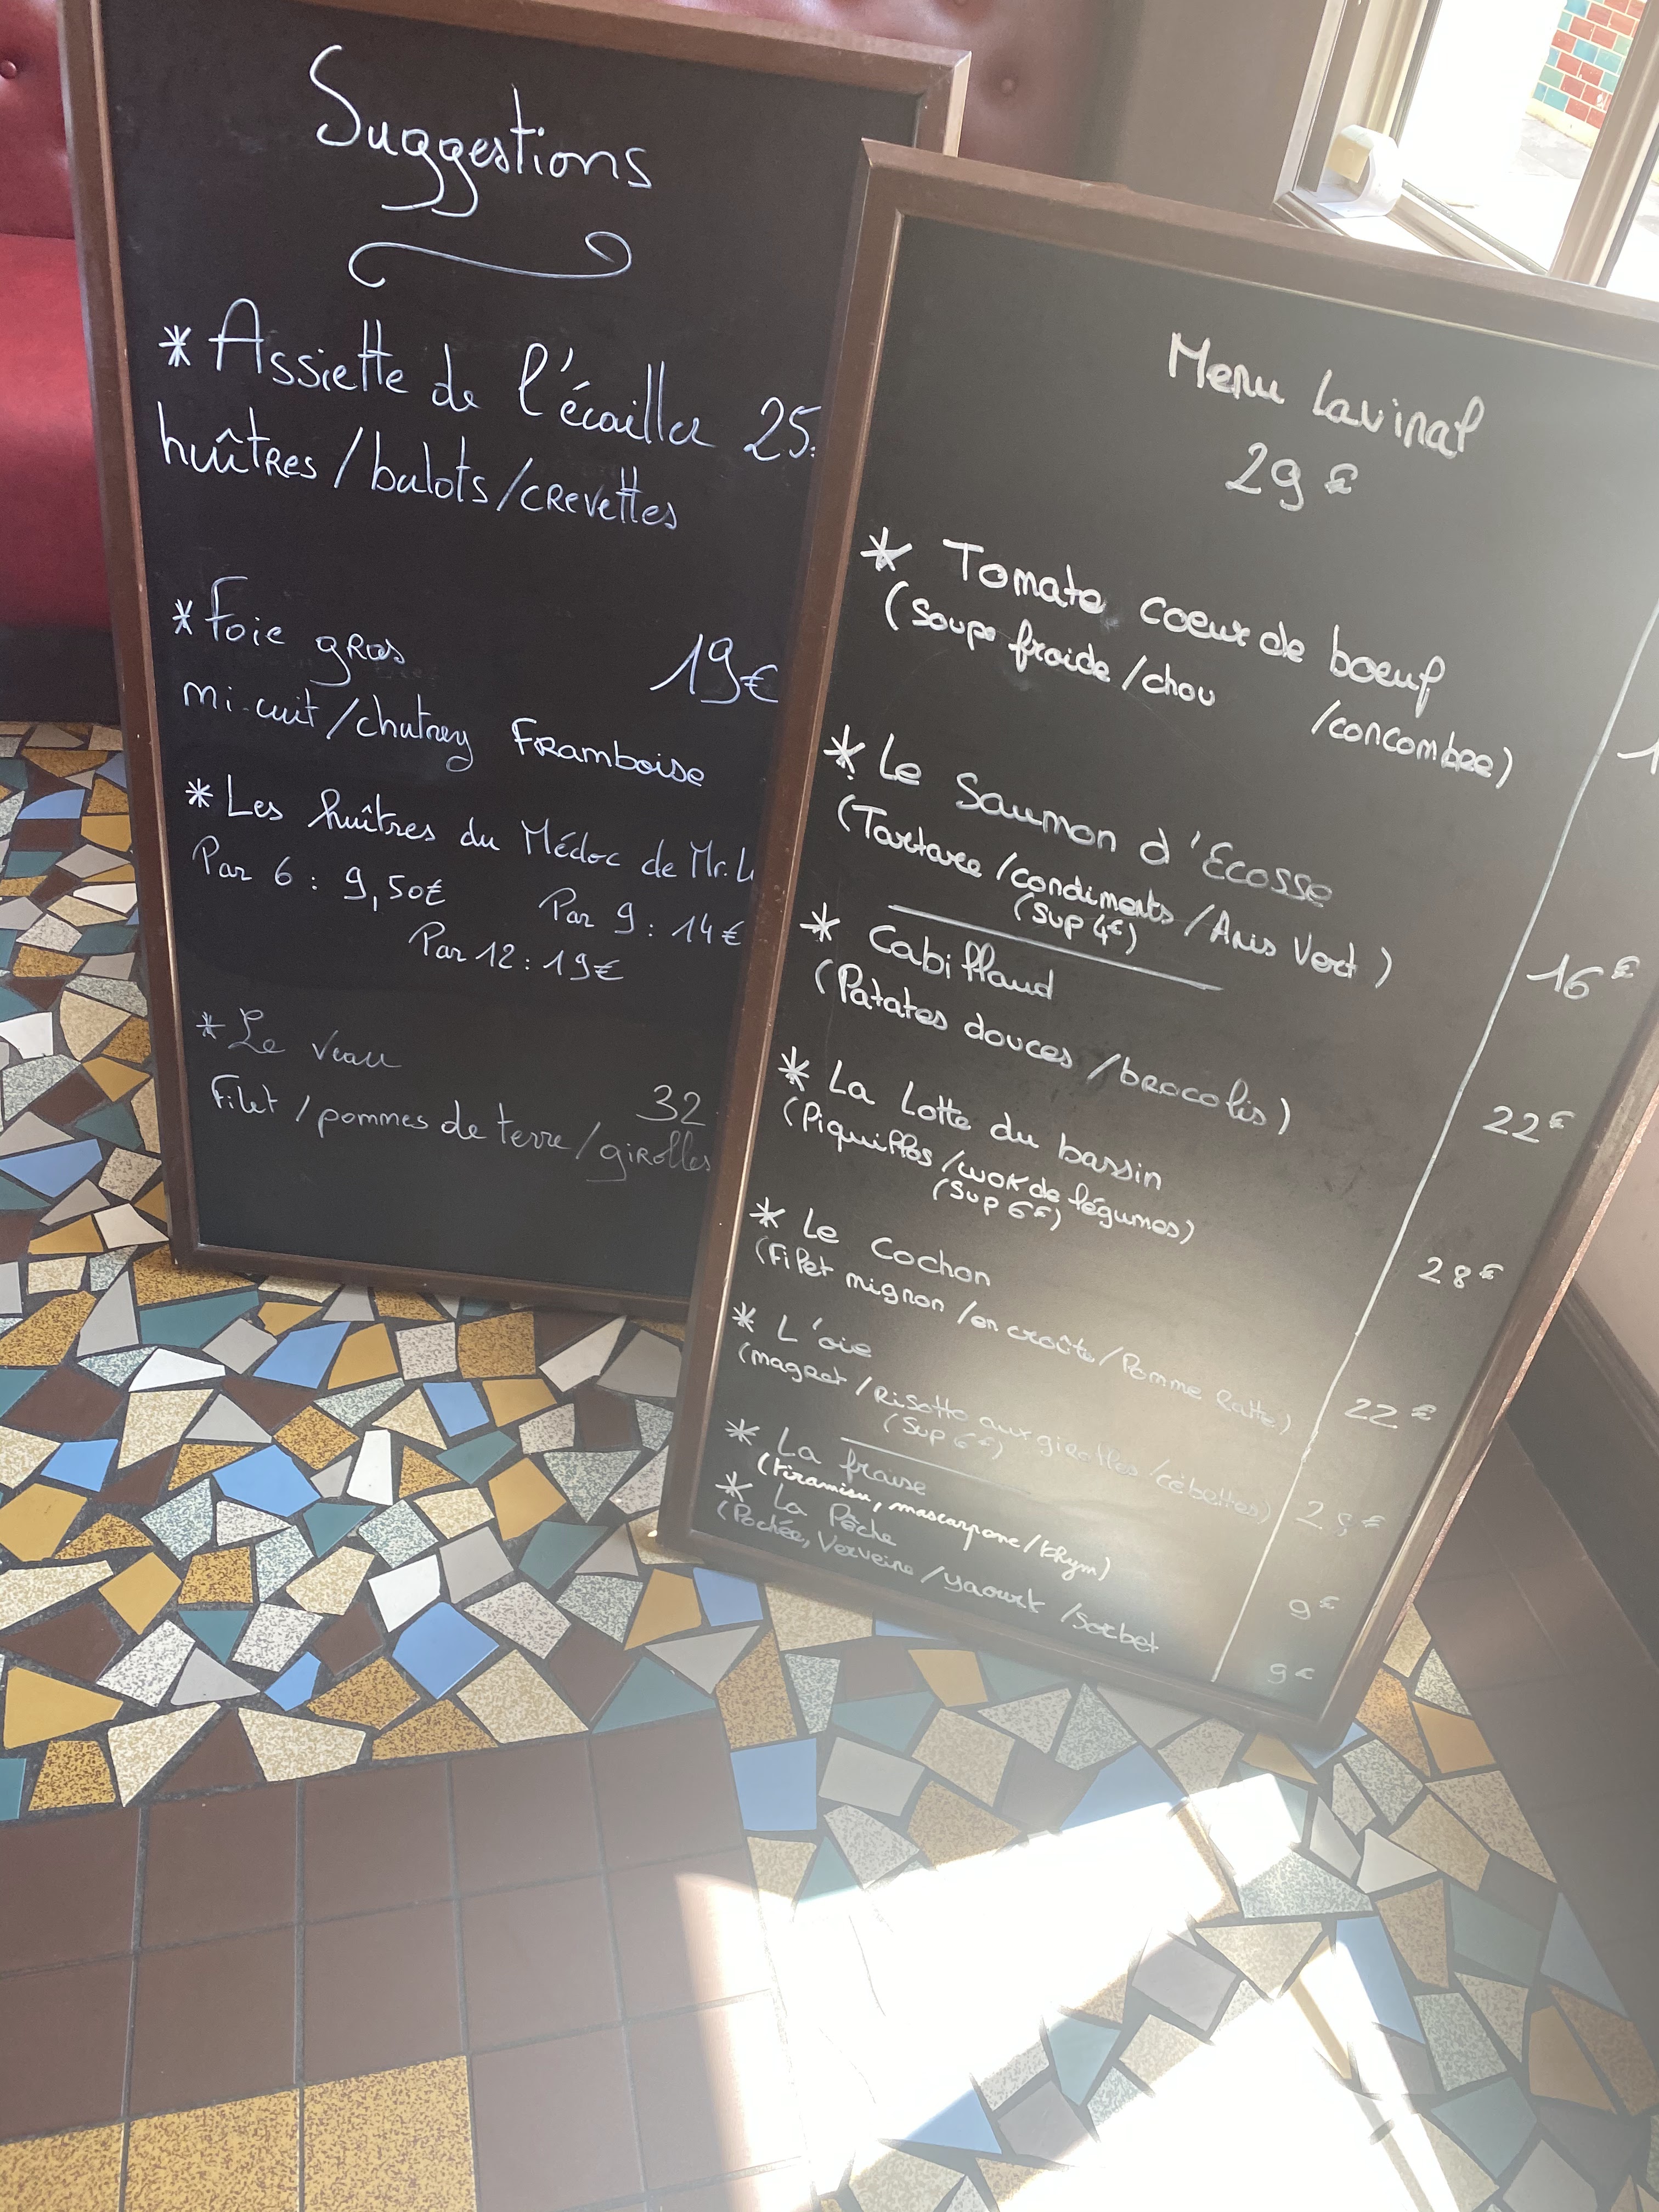 Suggestions
* Assiette de l'écailler 25
huîtres / bulots / crevettes
* Foie gras 19€
mi-cuit / chutney Framboise
* Les huîtres du Médoc de Mr.
Par 6 : 9,50€ Par 9 : 14€
Par 12 : 19€
* Le veau
32
Filet / pommes de terre / girolles
Menu Lavinal
29€
* Tomate coeur de boeuf
(Soupe froide / chou / concombre)
* Le Saumon d'Ecosse
(Tartare / condiments / Anis Vert) 16€
(Sup 4€)
* Cabillaud
(Patates douces / brocolis) 22€
* La Lotte du bassin
(Piquillos / wok de légumes) 28€
(Sup 6€)
* Le Cochon
(Filet mignon / en croûte / Pomme Ratte) 22€
* L'oie
(magret / Risotto aux girolles / cébettes)
(Sup 6€)
* La fraise
(tiramisu, mascarpone / thym) 9€
* La Pêche
(Pochée, Verveine / yaourt / Sorbet 9€